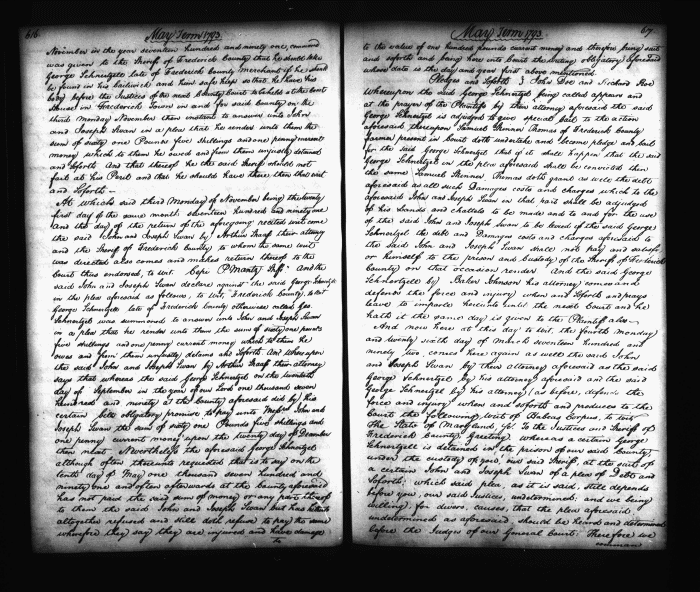 616
May Term 1793.
November in the year seventeen hundred and ninety one, command
was given to the Sheriff of Frederick County that he should take
George Schnertzell late of Frederick County merchant if he should
be found in his bailiwick and him safe keep so that he have his
body before the Justices of the next County Court to be held at the Court
House in Frederick Town in and for said County on the
third Monday November then instant to answer unto John
and Joseph Swan in a plea that he render unto them the
sum of sixty one Pounds five shillings and one penny current
money which to them he owed and from them unjustly detained
and soforth And that thereof he the said Sheriff should not
fail at his Peril and that he should have there then that writ
and soforth
At which said third Monday of November being the twenty
first day of the same month, seventeen hundred and ninety one
and the day of the return of the aforegoing recited writ come
the said John and Joseph Swan by Arthur Shaaff their attorney
and the Sheriff of Frederick County to whom the same writ
was directed also comes and makes return thereof to the
Court thus endorsed, to wit. Cepi P. Mantz Shff. And the
said John and Joseph Swan declare against the said George Schnertzell
in the plea aforesaid as follows, to wit, Frederick County, to wit
George Schnertzell late of Frederick County otherwise called Geo.
Schnertzell was summoned to answer unto John and Joseph Swan
in a plea that he render unto them the sum of sixty one pounds
five shillings and one penny current money which to them he
owes and from them unjustly detains and soforth And whereupon
the said John and Joseph Swan by Arthur Shaaff their attorney
says that whereas the said George Schnertzell on the twentieth
day of September in the year of our Lord one thousand seven
hundred and ninety at the County aforesaid did by his
certain bill obligatory promise to pay unto Messrs John and
Joseph Swan the sum of sixty one Pounds five shillings and
one penny current money upon the twenty day of December
then next. Nevertheless the aforesaid George Schnertzell
although often thereunto requested that is to say on the
tenth day of May one thousand seven hundred and
ninety one and often afterwards at the County aforesaid
has not paid the said sum of money or any part thereof
to them the said John and Joseph Swan but has hitherto
altogether refused and still doth refuse to pay the same
wherefore they say they are injured and have damage
to
May Term 1793.
to the value of one hundred pounds current money and therefore bring suit
and soforth and bring here into Court the writing obligatory aforesaid
whose date is the day and year first above mentioned.
Pledges and soforth John Doe and Richard Roe
Whereupon the said George Schnertzell being called appears and
at the prayer of the Plaintiffs by their attorney aforesaid the said
George Schnertzell is adjudged to give special bail to the action
aforesaid thereupon Samuel Skinner Thomas of Frederick County
farmer present in Court doth undertake and become pledge and bail
for the said George Schnertzell that if it shall happen that the said
George Schnertzell in the plea aforesaid shall be convicted then
the same Samuel Skinner Thomas doth grant as well the debt
aforesaid as all such Damages costs and charges which to the
aforesaid John and Joseph Swan in that part shall be adjudged
of his lands and chattels to be made and to and for the use
of the said John and Joseph Swan to be levied if the said George
Schnertzell the debt and Damages costs and charges aforesaid to
the said John and Joseph Swan shall not pay and satisfy
or himself to the prison and custody of the Sheriff of Frederick
County on that occasion render And the said George
Schnertzell by Baker Johnson his attorney comes and
defends the force and injury when and soforth and prays
leave to imparle hereunto until the next Court and he
hath it the same day is given to the Plaintiff also
And now here at this day to wit, the fourth Monday
and twenty sixth day of March seventeen hundred and
ninety two, comes here again as well the said John
and Joseph Swan by their attorney aforesaid as the said
George Schnertzell by his attorney aforesaid and the said
George Schnertzell by his attorney (as before, defends the
force and injury when and soforth and produces to the
Court the following writ of Habeas Corpus, to wit
The State of Maryland, ss. To the Justices and Sheriff of
Frederick County, Greeting whereas a certain George
Schnertzell is detained in the prison of our said County,
under the custody of you, our said Sheriff, at the suit of
a certain John and Joseph Swan of a plea of Debt and
soforth; which said plea, as it is said, still depends
before you, our said Justices, undetermined; and we being
willing, for divers causes, that the plea aforesaid,
undetermined as aforesaid, should be heard and determined
before the Judges of our General Court; Therefore we
command